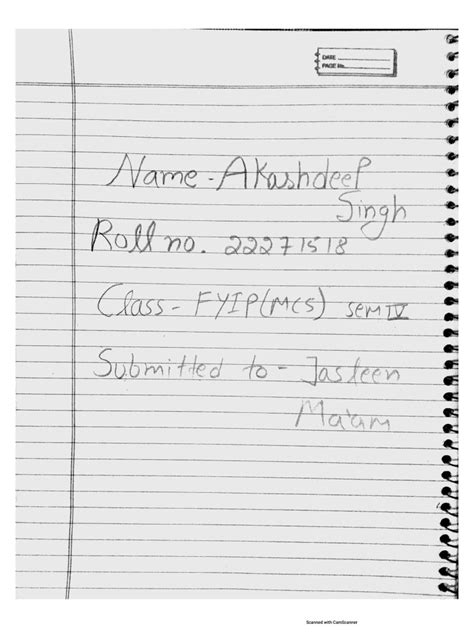 DATE
PAGE No.
Name - Akashdeep
Singh
Roll no. 22271518
Class - FYIP(MCS) sem IV
Submitted to - Jasleen
Ma'am
Scanned with CamScanner